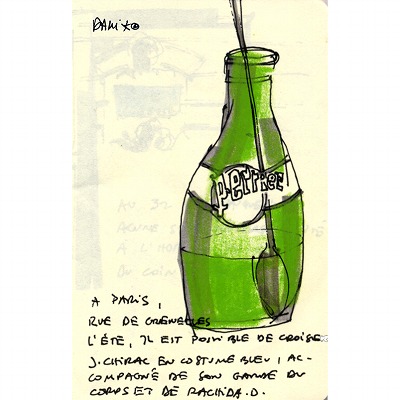 PARIS
Perrier
A PARIS,
RUE DE GRENELLES
L'ÉTÉ, IL EST POSSIBLE DE CROISER
J. CHIRAC EN COSTUME BLEU, AC-
COMPAGNÉ DE SON GARDE DU
CORPS ET DE RACHIDA.D.
AU 32
À L'HO
DU COIN